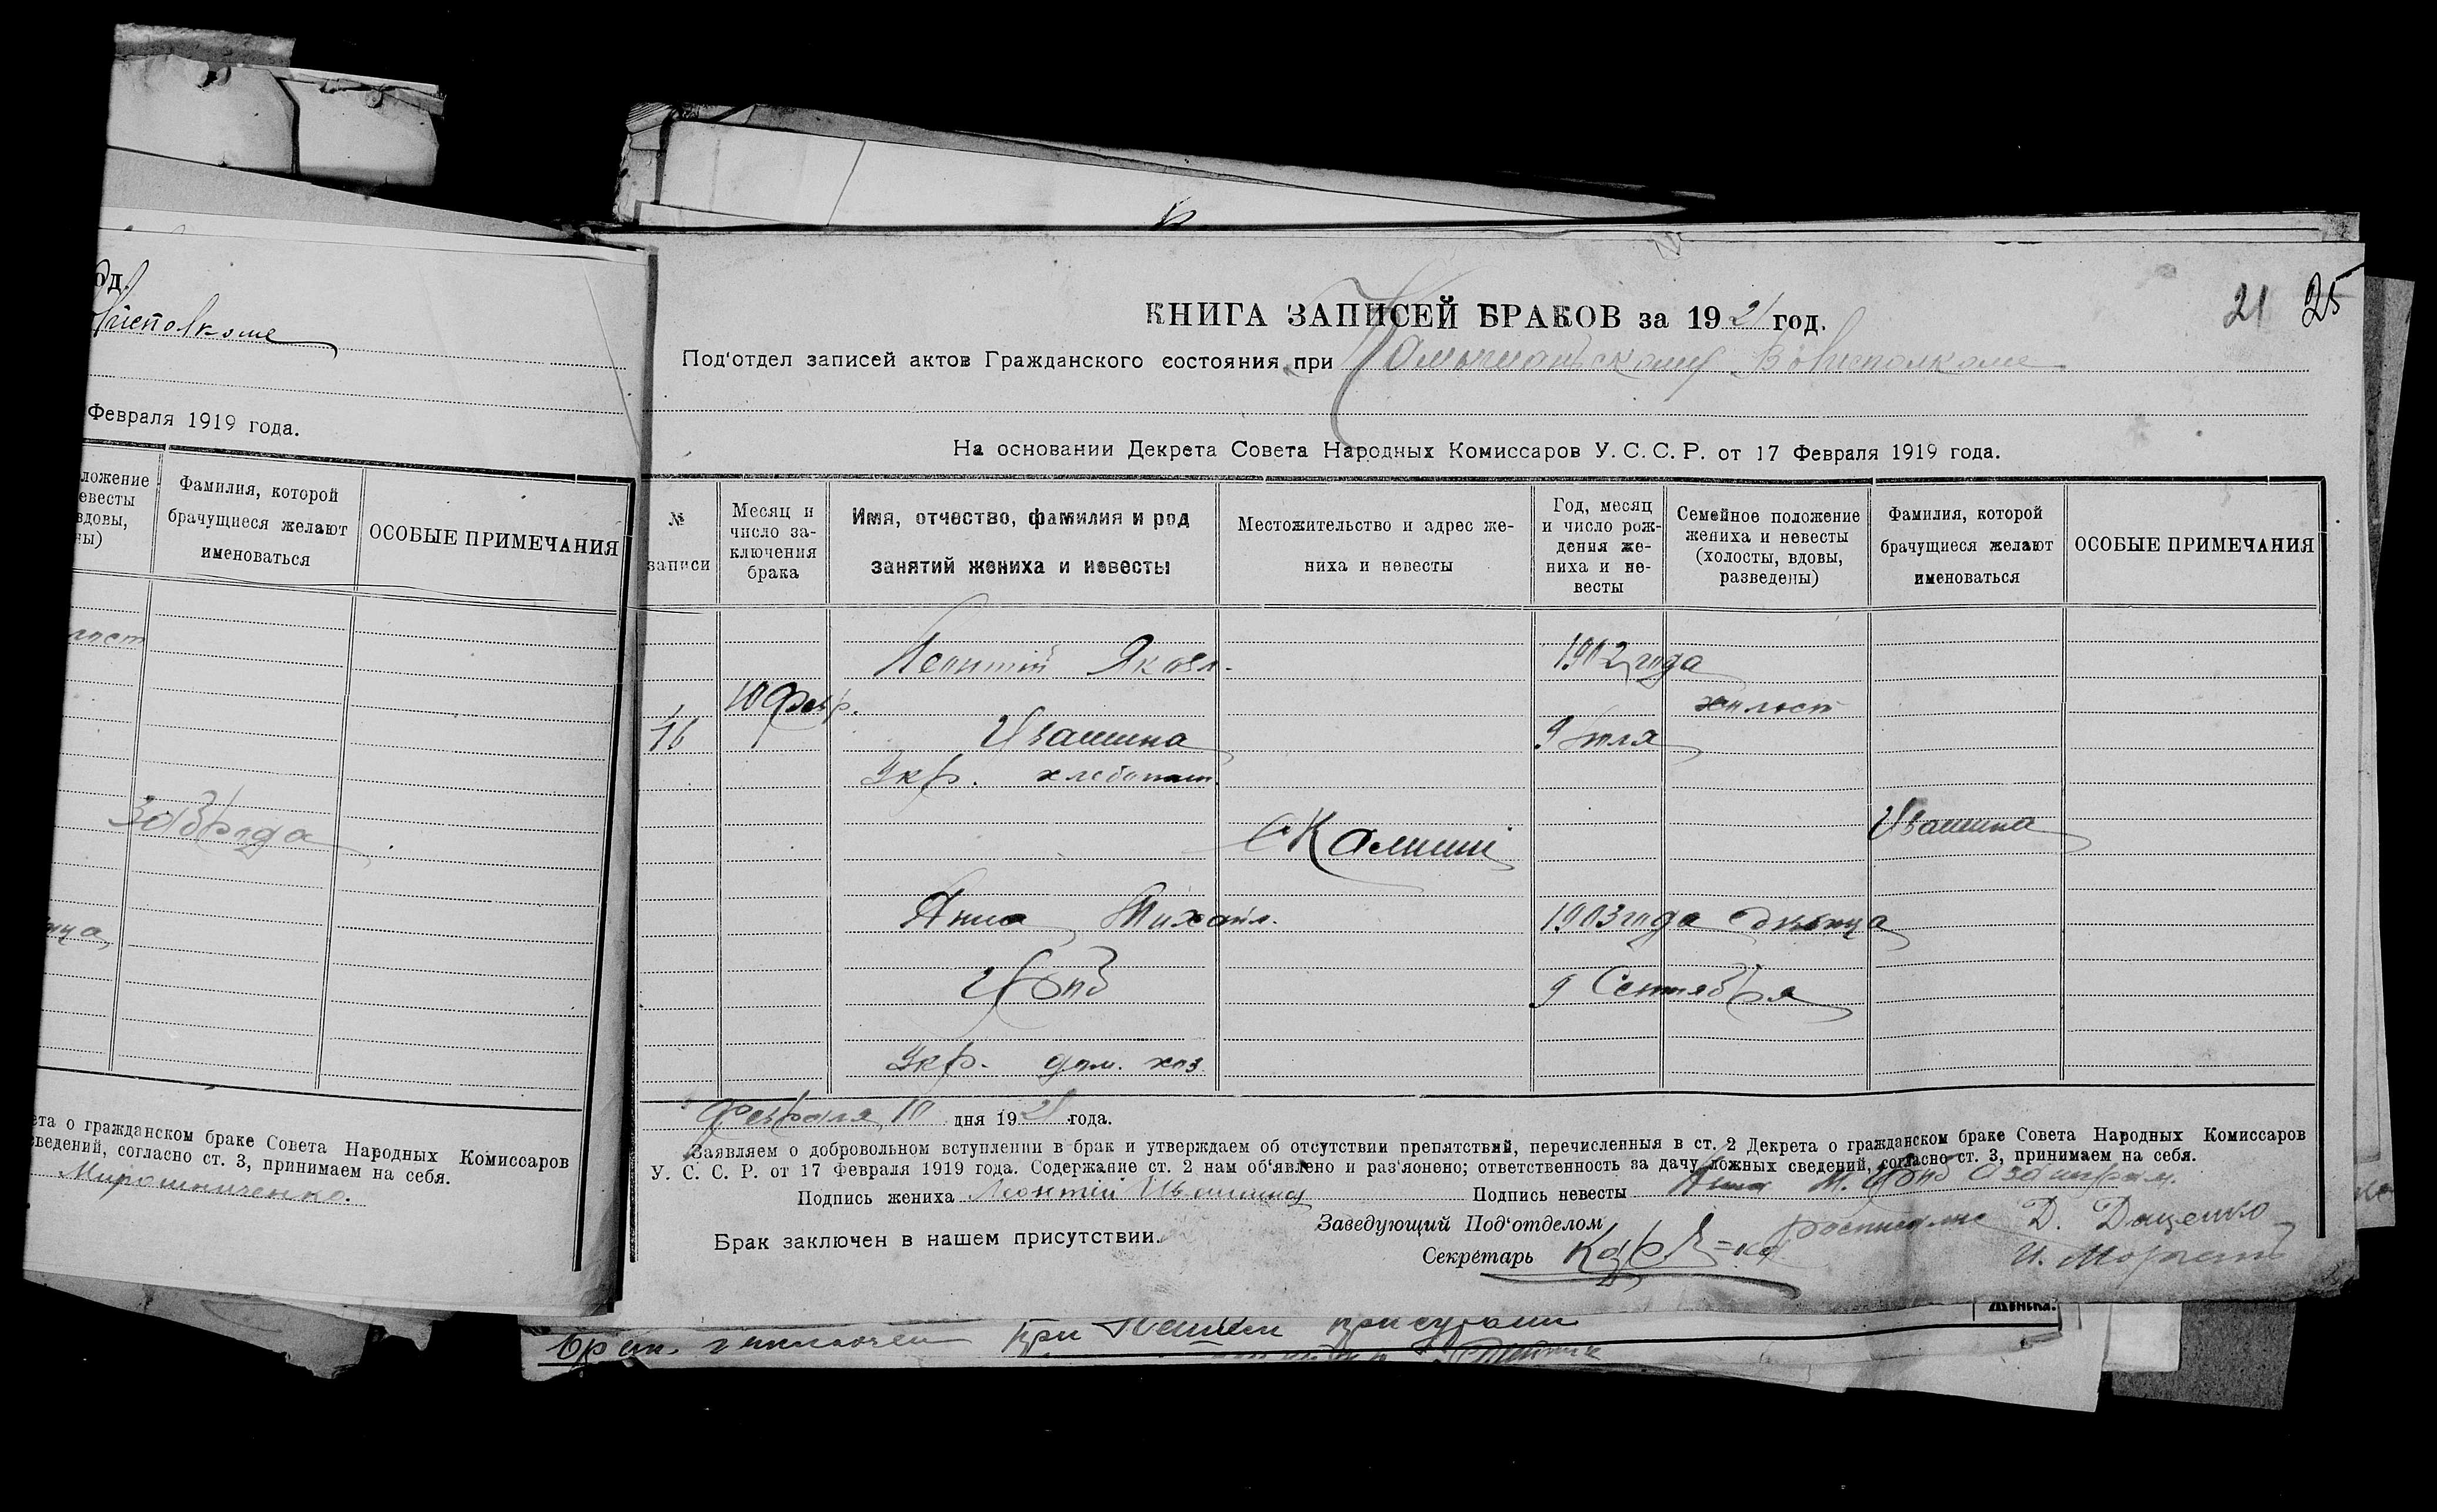 од.
Февраля 1919 года.
Фамилия, которой
брачущиеся желают
именоваться
ОСОБЫЕ ПРИМЕЧАНИЯ
ета о гражданском браке Совета Народных Комиссаров
сведений, согласно ст. 3, принимаем на себя.
Мирошниченко.
21 25
КНИГА ЗАПИСЕЙ БРАКОВ за 1921 год.
Под'отдел записей актов Гражданского состояния при
На основании Декрета Совета Народных Комиссаров У. С. С. Р. от 17 Февраля 1919 года.
№
записи
Месяц и
число за-
ключения
брака
Имя, отчество, фамилия и род
занятий жениха и невесты
Местожительство и адрес же-
ниха и невесты
Год, месяц
и число рож-
дения же-
ниха и не-
весты
Семейное положение
жениха и невесты
(холосты, вдовы,
разведены)
Фамилия, которой
брачущиеся желают
именоваться
ОСОБЫЕ ПРИМЕЧАНИЯ
Леонтій Яковл. 1902 года
10 Февр. холост
16 Ивашина 9 Июля
Укр. хлебопаш.
Ивашина
Анна Михайл. 1903 года
9 Сентября
Укр. дом. хоз.
Февраля 10 дня 1921 года.
Заявляем о добровольном вступлении в брак и утверждаем об отсутствии препятствий, перечисленныя в ст. 2 Декрета о гражданском браке Совета Народных Комиссаров
У. С. С. Р. от 17 Февраля 1919 года. Содержание ст. 2 нам об'явлено и раз'яснено; ответственность за дачу ложных сведений, согласно ст. 3, принимаем на себя.
Подпись жениха Леонтій Ивашина Подпись невесты Анна М.
Заведующий Под'отделом
Д. Даценко
Брак заключен в нашем присутствии.
Секретарь